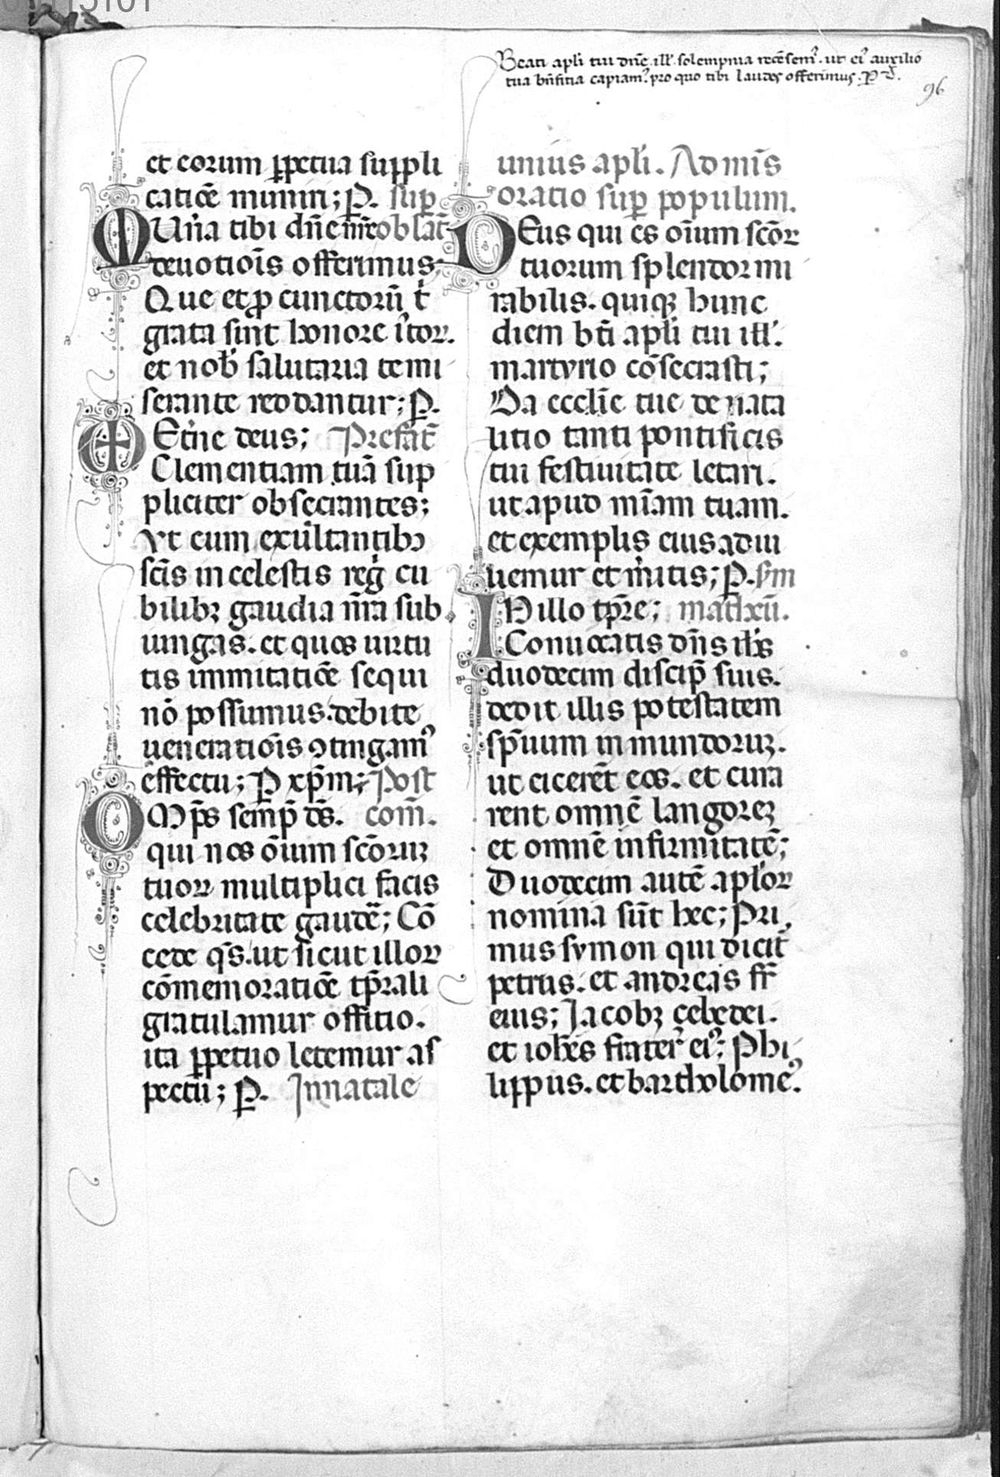 Beati apłi tui dñe ill̃ solempnia recẽsemꝰ. ut eiꝰ auxilio
tua bñficia capiamꝰ. pro quo tibi laudes offerimus. P̲
96
et eorum ꝑpetua suppli
catiõe muniri; P̲. sup̲
MUña tibi dñe nr̃e oblat̃
deuotiois offerimus
Que et ꝓ cunctorũ t̃
grata sint honore ĩtoꝝ.
et nob̃ salutaria te mi
serante reddantur; P̲.
Eterñe deus; Prefat̃
Clementiam tuã sup
pliciter obsecrantes;
Vt cum exultantibꝰ
sc̃is in celestis reg̃ cu
bilibꝫ gaudia nr̃a sub
iungas. et quos uirtu
tis immitatiõe sequi
nõ possumus. debite
uenerationis ꝯtingamꝰ
effectu; P̲ xp̃m; Post
OMp̃s semp̲ ds̃. com̃.
qui nos õium sc̃oruꝫ
tuoꝝ multiplici facis
celebritate gaudẽ; Cõ
cede qs̃. ut sicut illoꝝ
cõmemoratiõe tp̃rali
gratulamur offitio.
ita ꝑpetuo letemur as
pectu; P̲. In natale
unius apłi. Ad mis̃
oratio sup̲ populum.
DEus qui es oĩum sc̃oꝝ
tuorum splendor mi
rabilis. quiqꝫ hunc
diem bt̃i apłi tui ill̃.
martyrio cõsecrasti;
Da ecclie tue de nata
litio tanti pontificis
tui festiuitate letari.
ut apud mĩam tuam.
et exemplis eius adiu
uemur et mitis; P̲. sym
IN illo tp̃re; matheũ.
Conuocatis dñs ihs
duodecim discip̃ suis.
dedit illis potestatem
sp̃uum in mundoruꝫ.
ut eicerẽt eos. et cura
rent omnẽ langoreꝫ
et omnẽ infirmitatẽ;
Duodecim autẽ apłoꝝ
nomina sũt hec; Pri
mus symon qui dicit̃
petrus. et andreas fr̃
eius; Jacobꝫ çebedei.
et ioħes frater eiꝰ; Phi
lippus. et bartholomeꝰ.